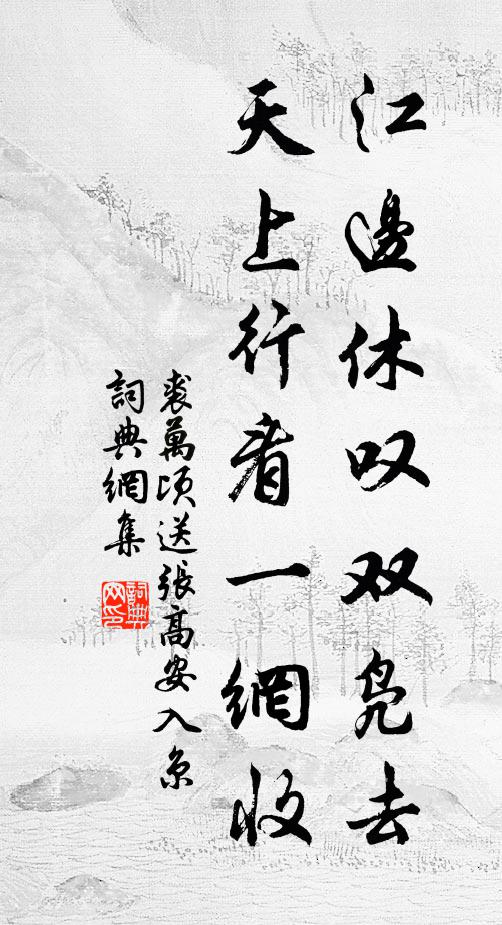 江邊休叹双凫去
天上行看一網收
裘萬頃送張高安入京
詞典網集
詞典網印